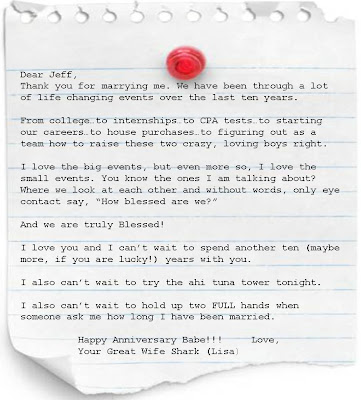 Dear Jeff,
Thank you for marrying me. We have been through a lot
of life changing events over the last ten years.
From college to internships to CPA tests to starting
our careers to house purchases to figuring out as a
team how to raise these two crazy, loving boys right.
I love the big events, but even more so, I love the
small events. You know the ones I am talking about?
Where we look at each other and without words, only eye
contact say, "How blessed are we?"
And we are truly Blessed!
I love you and I can't wait to spend another ten (maybe
more, if you are lucky!) years with you.
I also can't wait to try the ahi tuna tower tonight.
I also can't wait to hold up two FULL hands when
someone ask me how long I have been married.
Happy Anniversary Babe!!! Love,
Your Great Wife Shark (Lisa)